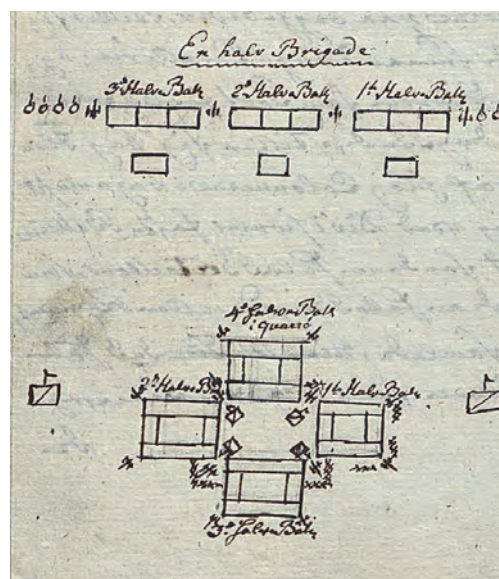 En halv Brigade
3ᵉ Halv Batl 2ᵉ Halv Batl 1ᵗᵉ Halv Batl
4ᵉ Halv Batl
i quarré
2ᵉ Halv Batl 1ᵗᵉ Halv Batl
3ᵉ Halv Batl